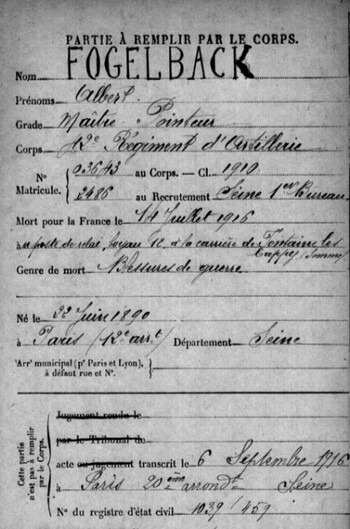 PARTIE À REMPLIR PAR LE CORPS.
Nom FOGELBACK
Prénoms Albert
Grade Maître Pointeur
Corps 12e Régiment d'Artillerie
N° Matricule. { 03643 au Corps. — Cl. 1910
2486 au Recrutement Seine 1er Bureau
Mort pour la France le 14 Juillet 1916
à poste de relai, boyau 12, à la carrière de Fontaine les Cappy (Somme)
Genre de mort Blessures de guerre
Né le 22 Juin 1890
à Paris (12e arrt) Département Seine
Arrt municipal (pr Paris et Lyon), à défaut rue et N°. }
Cette partie n'est pas à remplir par le Corps.
Jugement rendu le
par le Tribunal de
acte ou jugement transcrit le 6 Septembre 1916
à Paris 20ème arrondt Seine
N° du registre d'état civil 1039/459